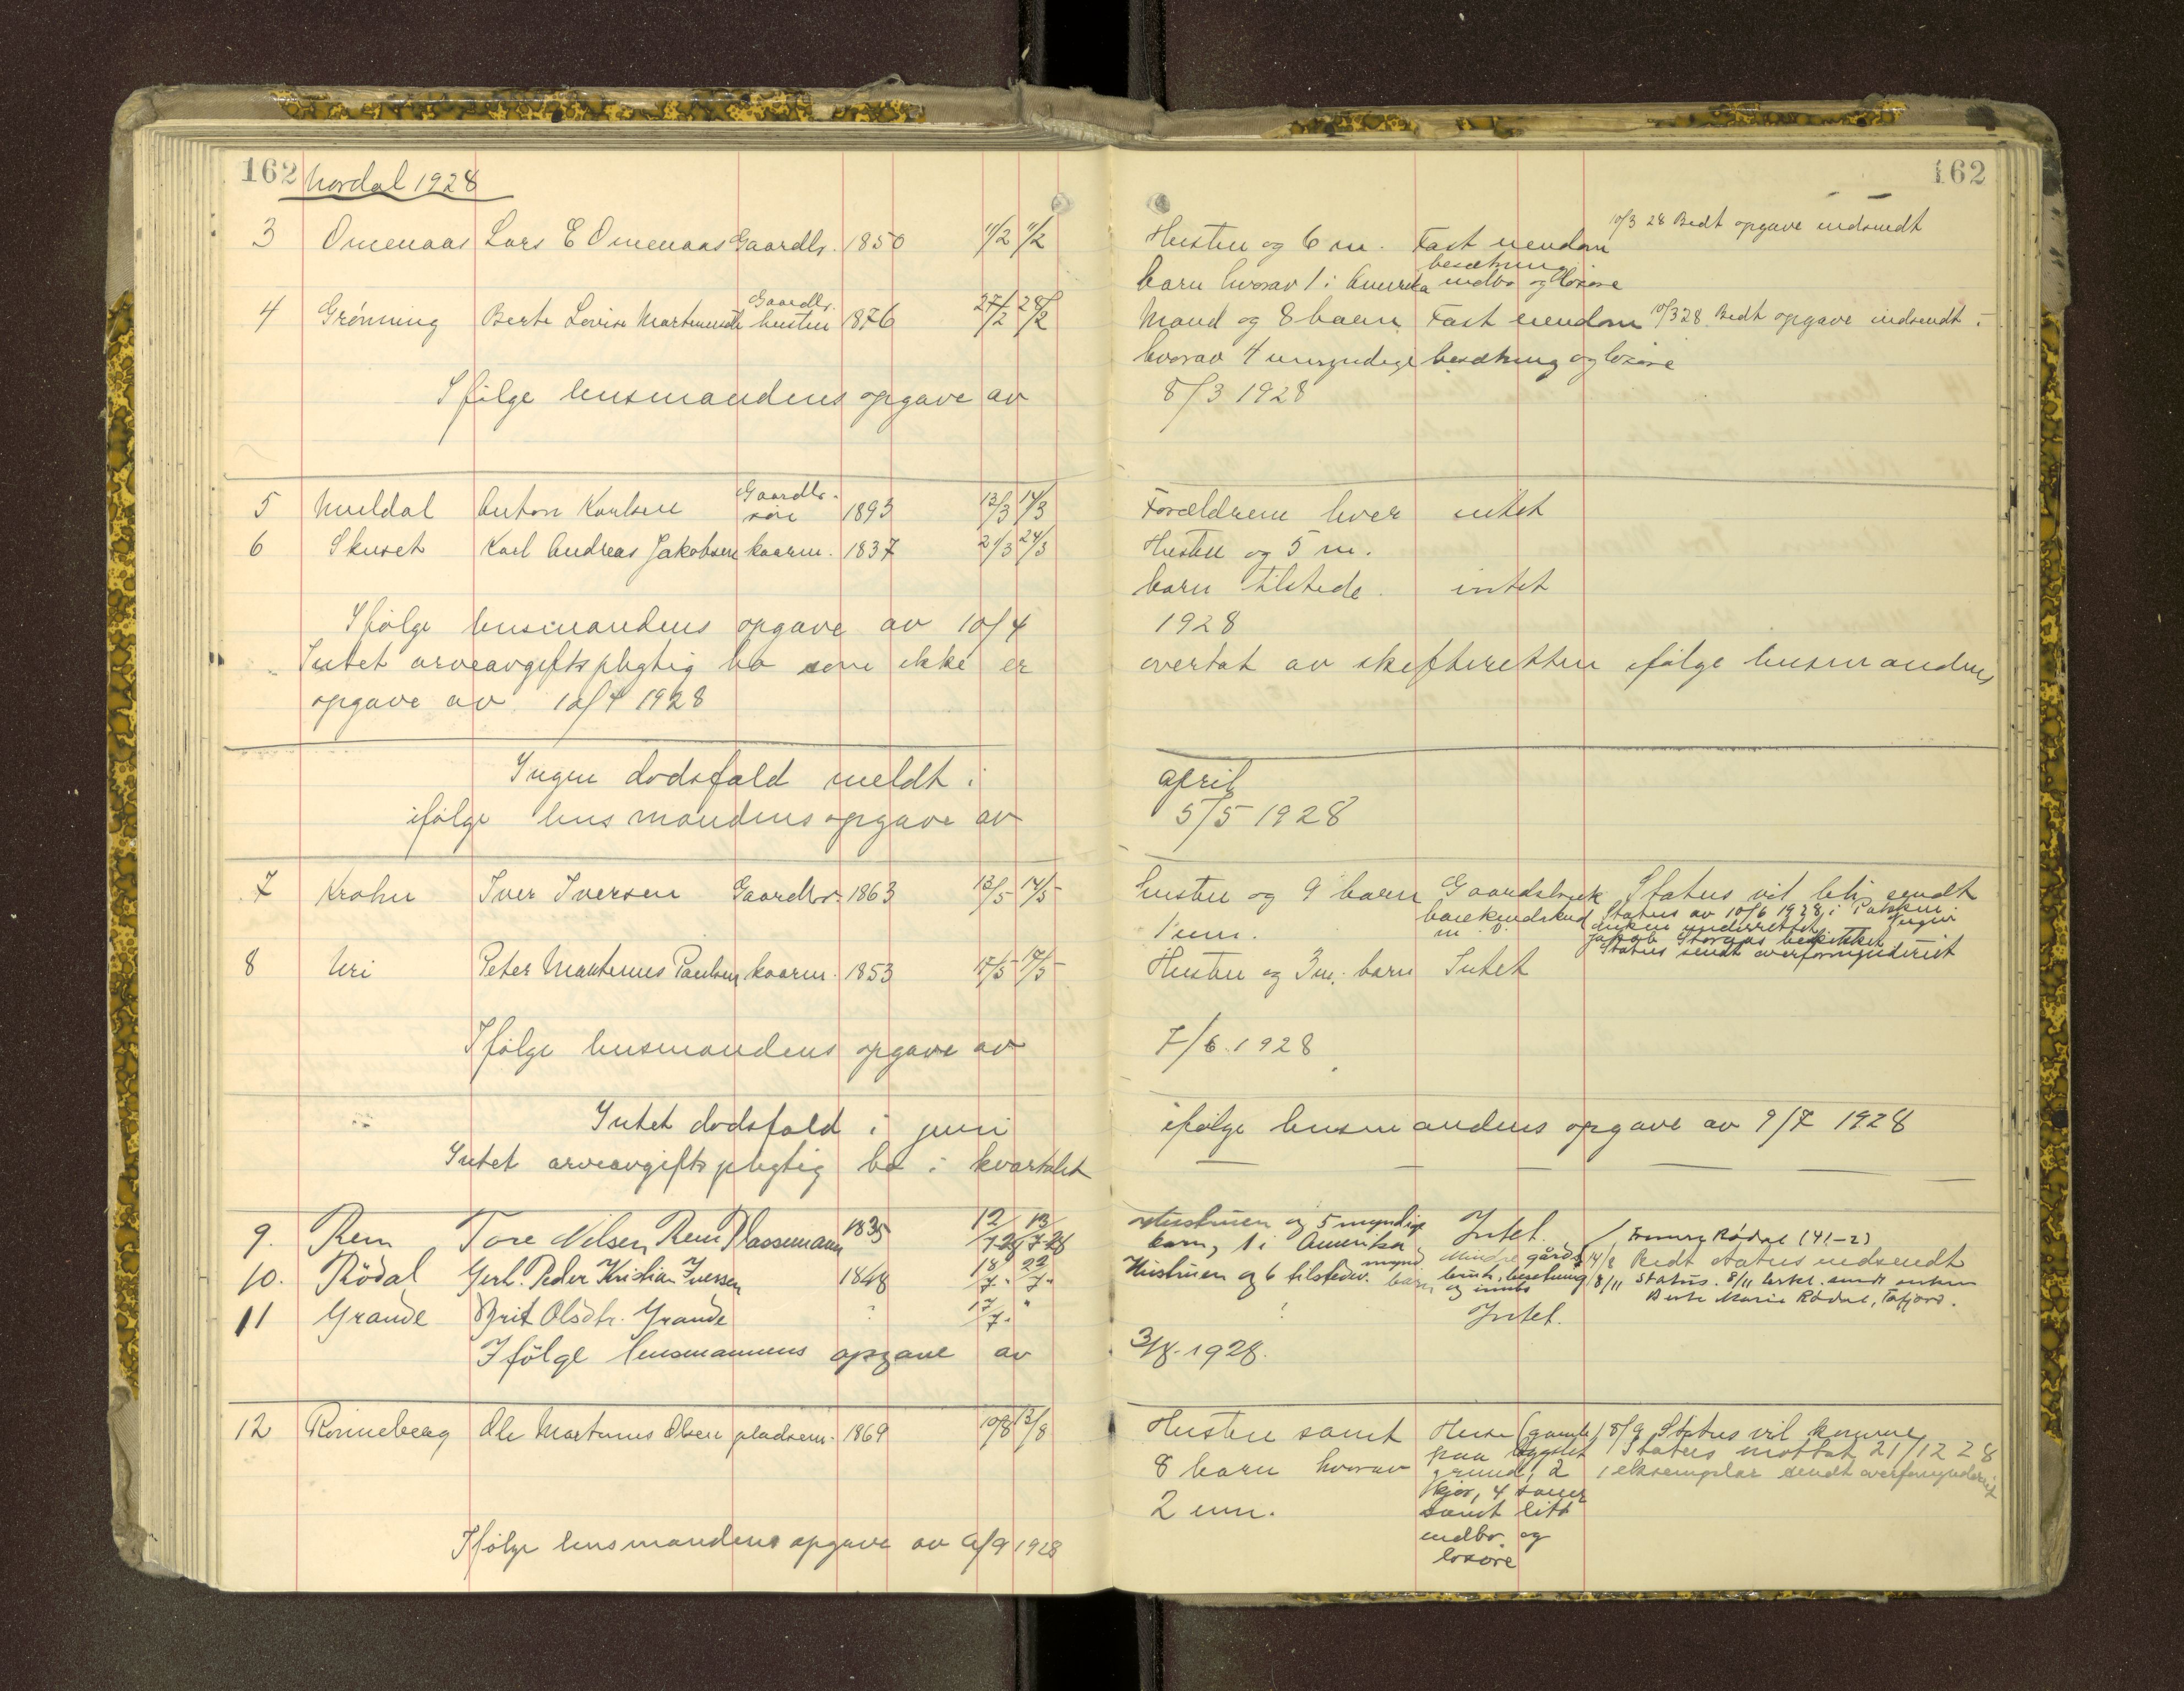 162 Nordal 1928
162
3 Omenaas Lars E Omenaas Gaardbr. 1850 11/2 11/2 Husten og 6 m. Fast eiendom 10/3 28 Bedt opgave indsendt
barn hvorav 1 i Amerika besætning indbo og løsøre
4 Grønning Berte Lovise Martinusdtr Gaardbr. husten 1876 27/2 28/2 Mand og 8 barn Fast eiendom 10/3 28. Bedt opgave indsendt.
hvorav 4 umyndige besætning og løsøre
Ifølge lensmandens opgave av 8/3 1928
5 Muldal Anton Karlsen Gaardbr. søn 1893 13/3 14/3 Forældrene lever intet
6 Skuset Karl Andreas Jakobsen kaarm. 1837 21/3 24/3 Husten og 5 m.
barn tilstede. intet
Ifølge lensmandens opgave av 10/4 1928
Intet arveavgiftspligtig bo som ikke er overtat av skifteretten ifølge lensmandens
opgave av 10/4 1928
Ingen dødsfald meldt i april
ifølge lensmandens opgave av 5/5 1928
7 Krohn Iver Iversen Gaardbr. 1863 13/5 14/5 husten og 9 barn Gaardsbruk Status vil bli sendt
1 um. bankindskud m. v. Status av 10/6 1928, i
enken underrettet. Ingen
Jakob Storaas beskikket
Status sendt overformynderiet
8 Uri Peter Martinus Paulsen kaarm. 1853 15/5 17/5 Husten og 3 m. barn Intet
Ifølge lensmandens opgave av 7/6 1928
Intet dødsfald i juni ifølge lensmandens opgave av 9/7 1928
Intet arveavgiftspligtig bo i kvartalet — — — —
9. Rem Tore Nilsen Rem Plassemann 1835 12/7 28 13/7 28 Hustruen og 5 myndige Intet.
barn, 1 i Amerika
10. Rödal Gerh. Peder Kristian Iversen 1848 18/7 " 22/7 " Hustruen og 6 tilstedev. mynd. barn Mindre gårds- bruk, besetning og innbo
/ Rødal (41-2)
14/8 Bedt status indsendt
8/11 Status. 8/11 sendt enken
Berte Marie Rødal, Tafjord.
11 Grande Brit Olsdtr. Grande ? 17/7 " " ? Intet.
Ifölge lensmannens opgave av 3/8-1928.
12 Rønneberg Ole Martinus Olsen pladsem. 1869 10/8 13/8 Husten samt Huse (gamle) 8/9 Status vil komme
8 barn hvorav paa bygslet Status mottat 21/12 28
2 um. grund, 2 1 eksemplar sendt overformynderiet
kjør, 4 sauer
samt litt
indbo og
løsøre
Ifølge lensmandens opgave av 6/9 1928